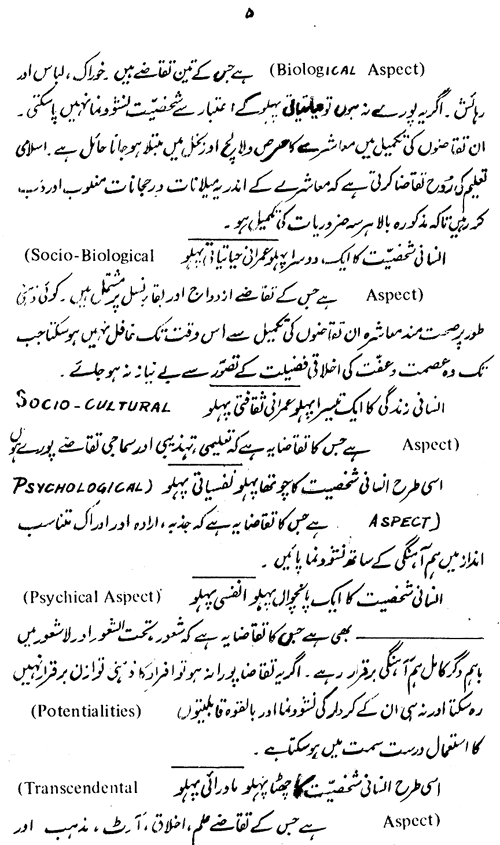 ۵
(Biological Aspect) ہے جس کے تین تقاضے ہیں ۔ خوراک ، لباس اور
رہائش ۔ اگر یہ پورے نہ ہوں تو حیاتیاتی پہلو کے اعتبار سے شخصیت نشوونما نہیں پاسکتی ۔
ان تقاضوں کی تکمیل میں معاشرے کا حرص و لالچ اور بخل میں مبتلا ہو جانا حائل ہے ۔ اسلامی
تعلیم کی رُوح تقاضا کرتی ہے کہ معاشرے کے اندر یہ میلانات و رجحانات مغلوب اور دب
کر رہیں تاکہ مذکورہ بالا ہر سہ ضروریات کی تکمیل ہو ۔
انسانی شخصیّت کا ایک دوسرا پہلو عمرانی حیاتیاتی پہلو (Socio-Biological
Aspect) ہے جس کے تقاضے ازدواج اور بقاء نسل پر مشتمل ہیں ۔ کوئی ذہنی
طور پر صحت مند معاشرہ ان تقاضوں کی تکمیل سے اس وقت تک غافل نہیں ہو سکتا جب
تک وہ عصمت و عفّت کی اخلاقی فضیلت کے تصوّر سے بے نیاز نہ ہو جائے ۔
انسانی زندگی کا ایک تیسرا پہلو عمرانی ثقافتی پہلو SOCIO-CULTURAL
Aspect) ہے جس کا تقاضا یہ ہے کہ تعلیمی ، تہذیبی اور سماجی تقاضے پورے ہوں
اسی طرح انسانی شخصیت کا چوتھا پہلو نفسیاتی پہلو (PSYCHOLOGICAL
ASPECT) ہے جس کا تقاضا یہ ہے کہ جذبہ ، ارادہ اور ادراک متناسب
انداز میں ہم آہنگی کے ساتھ نشوونما پائیں ۔
انسانی شخصیت کا ایک پانچواں پہلو انفسی پہلو (Psychical Aspect)
بھی ہے جس کا تقاضا یہ ہے کہ شعور ، تحت الشعور اور لاشعور میں
باہم دگر کامل ہم آہنگی برقرار رہے ۔ اگر یہ تقاضا پورا نہ ہو تو افراد کا ذہنی توازن برقرار نہیں
رہ سکتا اور نہ ہی ان کے کردار کی نشوونما اور بالقوہ قابلیتوں (Potentialities)
کا استعمال درست سمت میں ہو سکتا ہے ۔
اسی طرح انسانی شخصیت کا چھٹا پہلو ماورائی پہلو (Transcendental
Aspect) ہے جس کے تقاضے علم ، اخلاق ، آرٹ ، مذہب اور